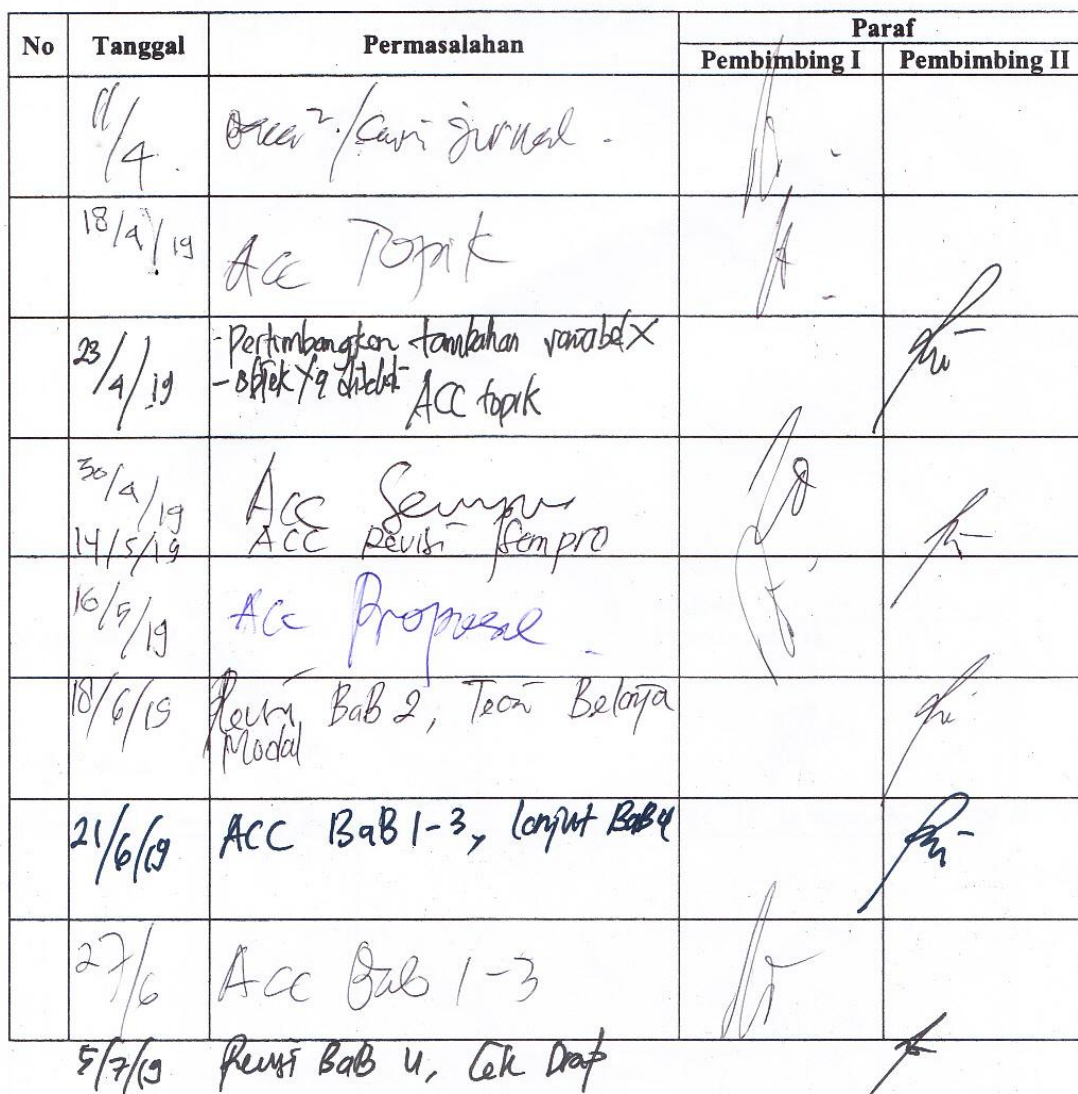 Paraf
No Tanggal Permasalahan
Pembimbing I Pembimbing II
11/4. /cari jurnal.
18/4/19 Acc Topik
- Pertimbangkan tambahan variabel X
23/4/19 - objek yg diteliti
ACC topik
30/4/19 Acc Sempro
14/5/19 ACC Revisi Sempro
16/5/19 Acc Proposal.
18/6/19 Revisi BaB 2, Teori Belanja
Modal
21/6/19 ACC BaB 1-3, lanjut BaB 4
27/6 Acc Bab 1-3
5/7/19 Revisi BaB 4, Cek Draf